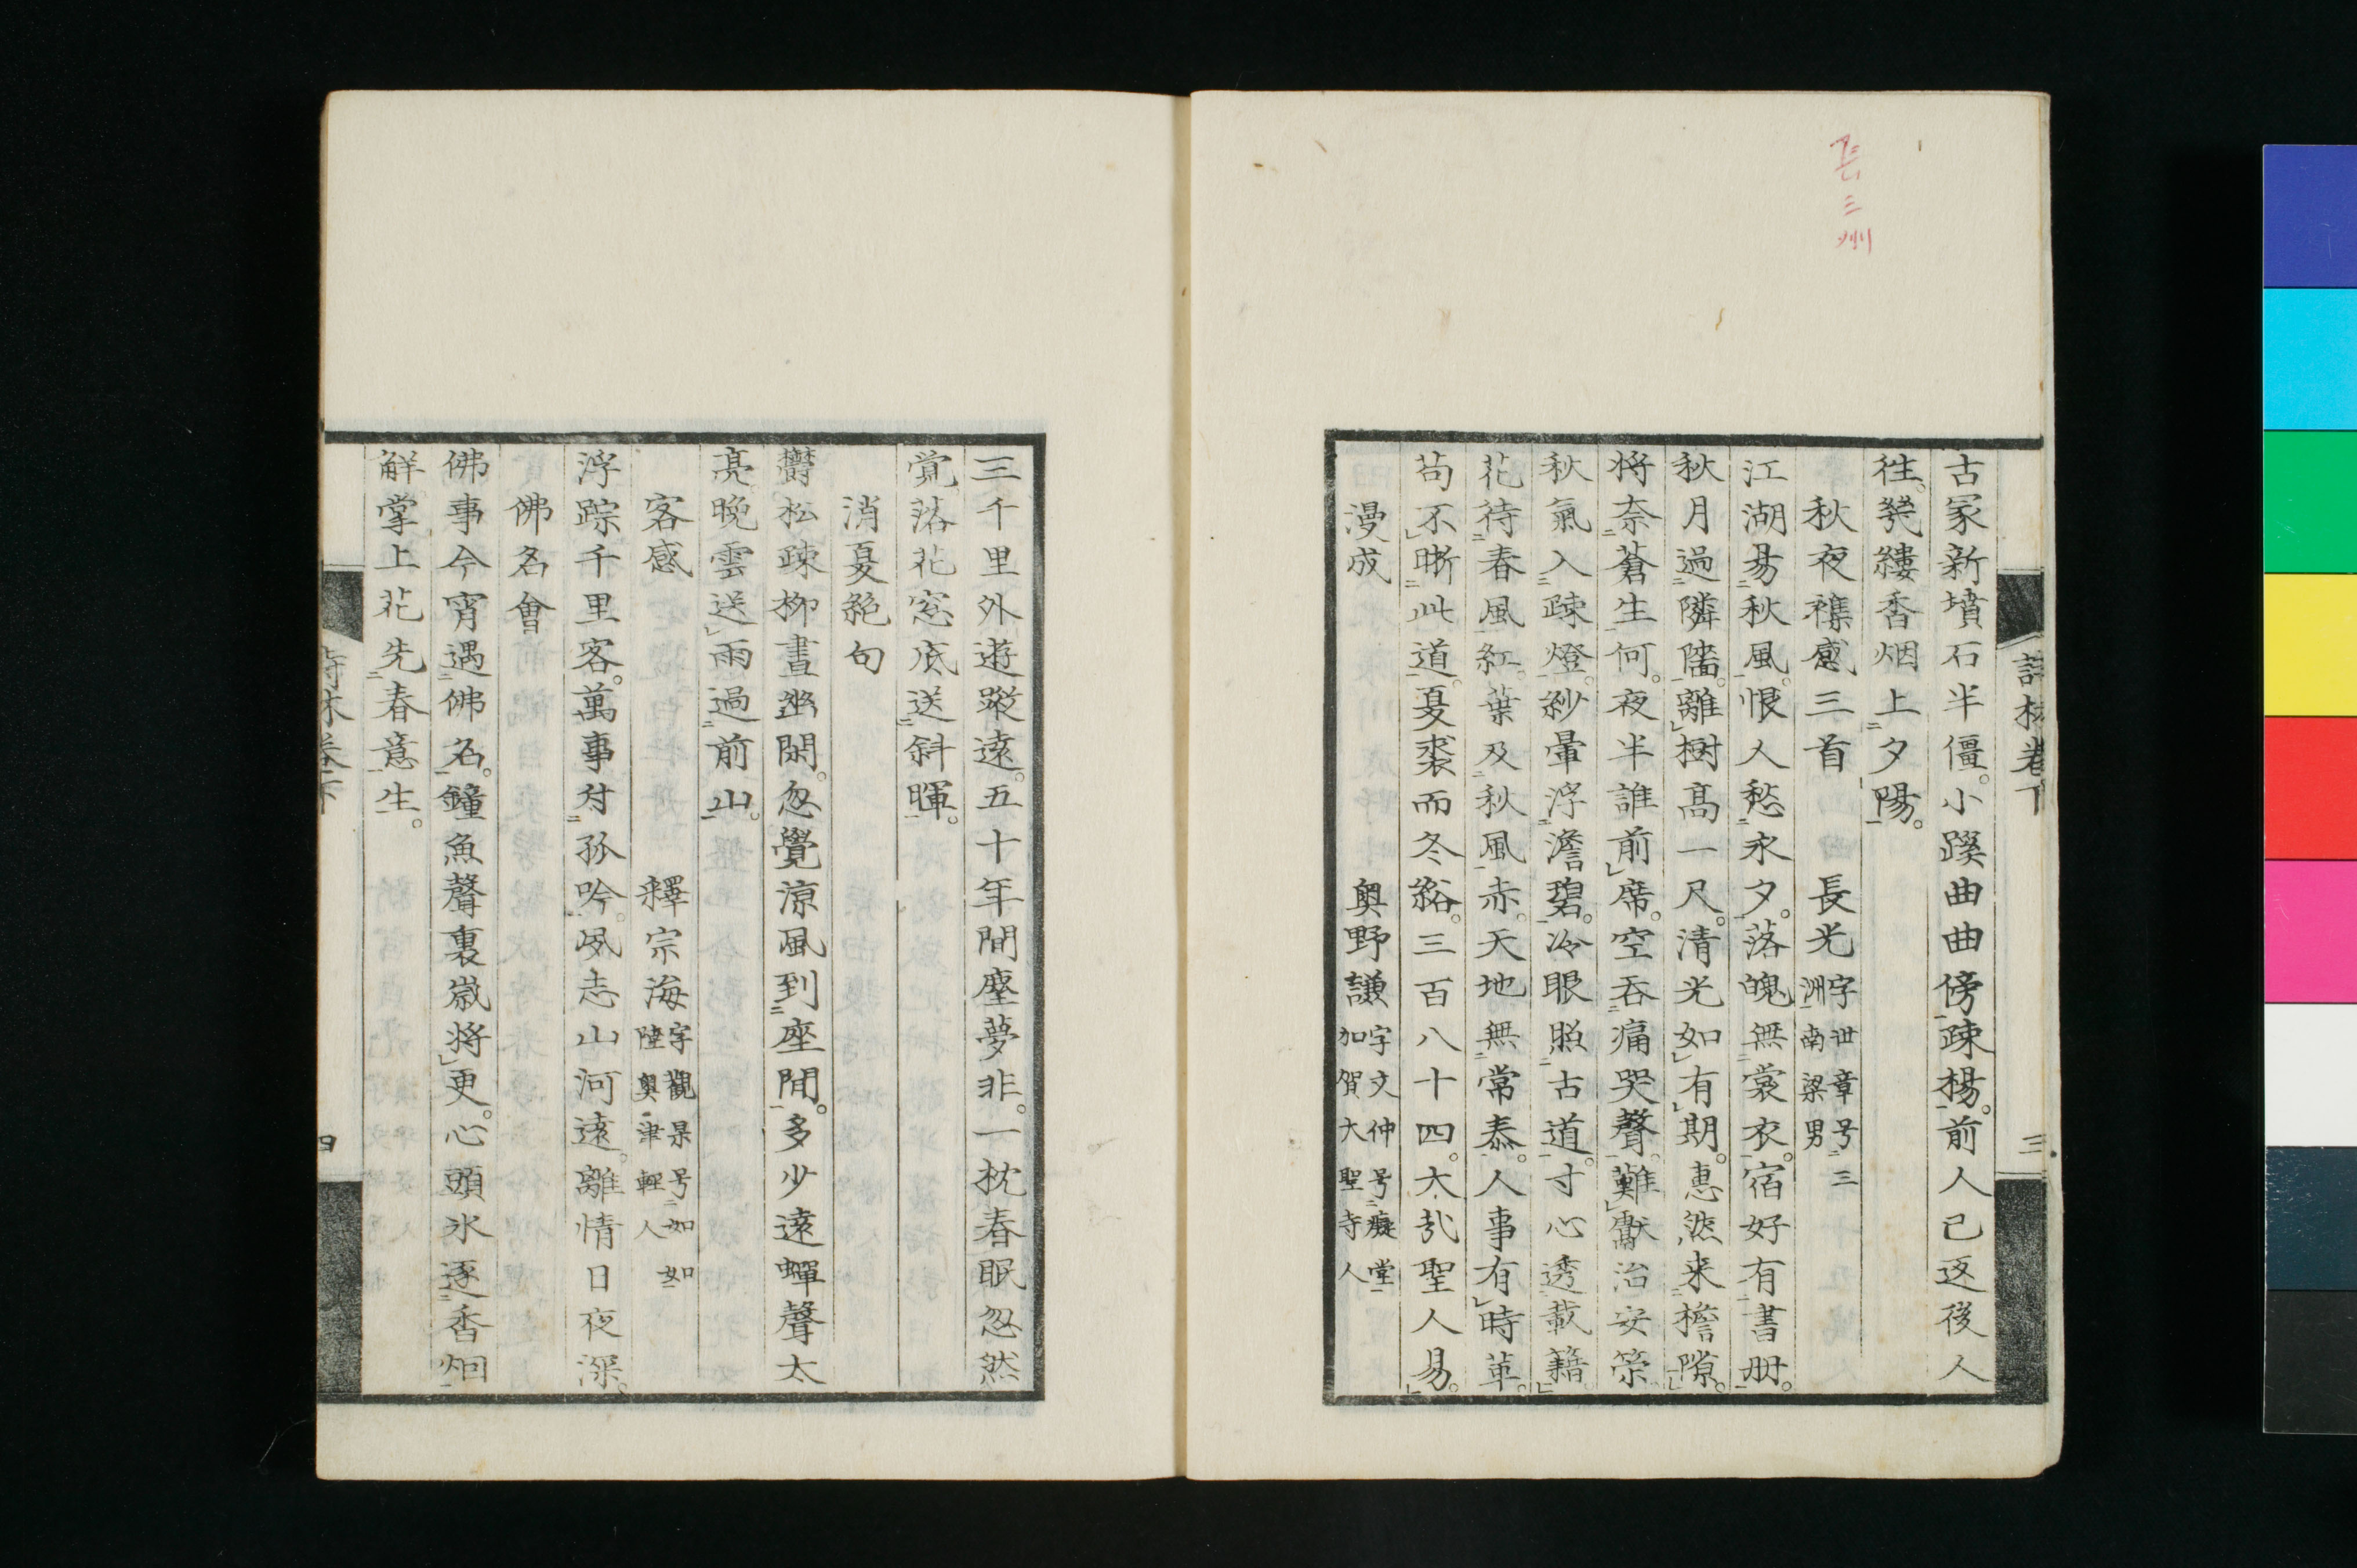 長三洲
古冢新墳石半僵。小蹊曲曲傍疎楊。前人已返後人
往。幾縷香烟上夕陽。
秋夜襍感三首　長光字世章号三洲南梁男
江湖易秋風。恨人愁永夕。落魄無裳衣。宿好有書册。
秋月過隣牆。離樹高一尺。清光如有期。惠然来檐隙。
将奈蒼生何。夜半誰前席。空吞痛哭聲。難獻治安策
秋氣入疎燈。紗暈浮澹碧。冷眼照古道。寸心透載籍。
花待春風紅。葉及秋風赤。天地無常泰。人事有時革。
苟不晰此道。夏裘而冬綌。三百八十四。大哉聖人易。
漫成　奥野謙字文仲号癡堂加賀大聖寺人
詩材巻下
三
三千里外遊蹤遠。五十年間塵夢非。一枕春眠忽然
覚。落花窓底送斜暉。
消夏絶句
欝松疎柳晝幽閑。忽覺涼風到座間。多少遠蟬聲太
亮。晩雲送雨過前山。
客感　釋宗海字觀景号如如陸奥津輕人
浮踪千里客。萬事付孤吟。夙志山河遠。離情日夜深。
佛名會
佛事今宵遇佛名。鐘魚聲裏歳将更。心頭氷逐香烟
解。掌上花先春意生。
四